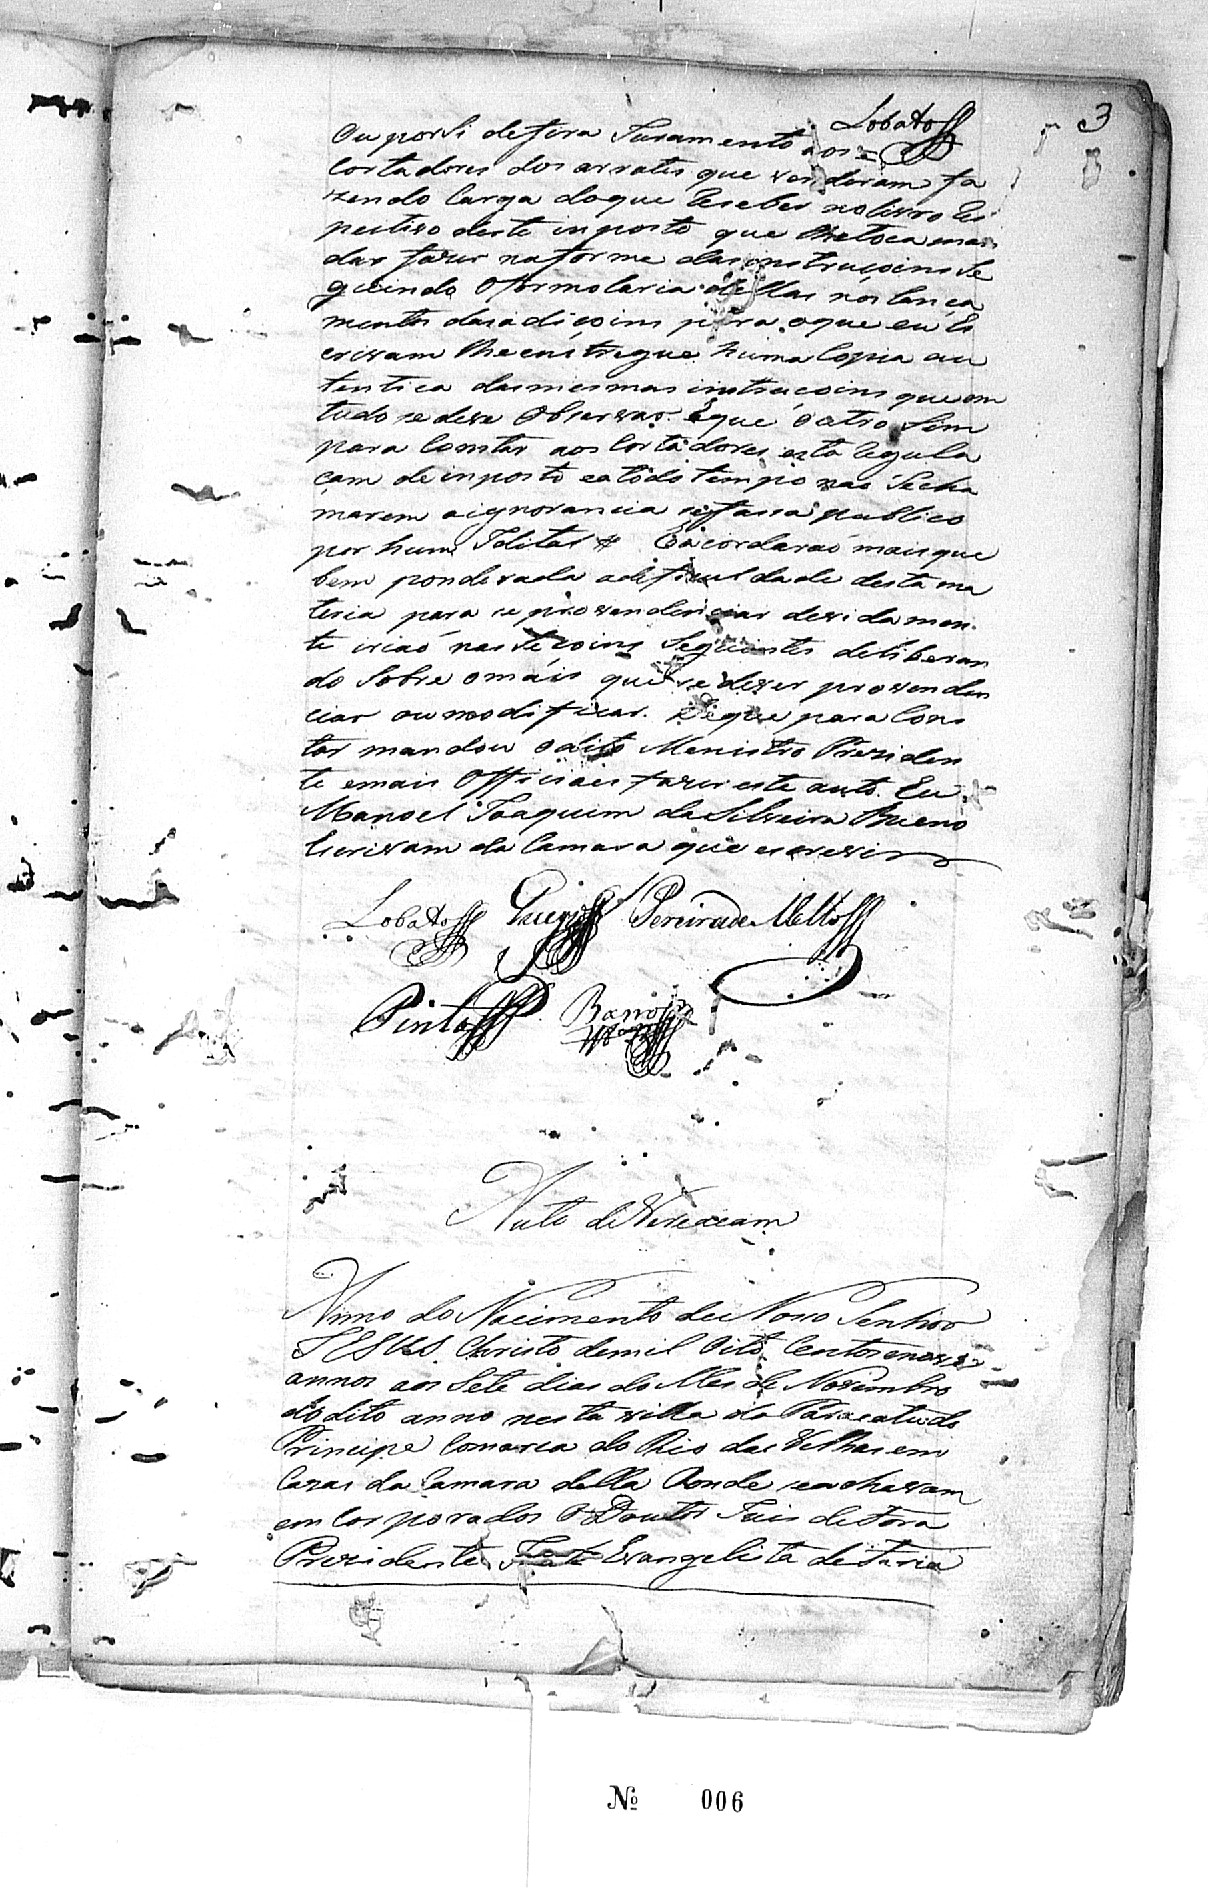 3
Lobato
Ou por si defira Juramento aos
Cortadores dos arrates que venderam fa
zendo Carga do que Receber no livro Res
pectivo deste imposto que lhe toca man
dar fazer na forma das instruçoins se
guindo o formolario dellas nos lança
mentos das adiçoins para o que eu Es
crivam lhe entregue huma Copia au
tentica das mesmas instruçoins que em
tudo se deve Observar. E que Outro Sim
para Constar aos Cortadores esta Regula
çam de imposto e a todo tempo nao Se cha
marem a ignorancia se fassa publico
por hum Editál # E acordaraõ mais que
bem ponderada a deficuldade desta ma
teria para se provendenciar devidamen
te iriaõ nas veçoins Seguintes deliberan
do Sobre o mais que se dever provenden
ciar ou modificar. E que para Cons
tar mandou o dito Menistro Preziden
te e mais Officiaes fazer este auto. Eu
Manoel Joaquim da Silveira Bueno
Escrivam da Camara que escrevi
Lobato Pereira de Mello
Pinto Barros
Auto de Vereaçam
Anno do Nacimento de Nosso Senhor
JESUS Christo de mil Oito Centos e nove
annos aos Sete dias do Mes de Novembro
do dito anno nesta villa do Paracatu do
Principe Comarca do Rio das Velhas em
Cazas da Camara della Aonde se achavam
em Corporados O Doutor Juis de fora
Prezidente Evangelista de faria
Nº 006